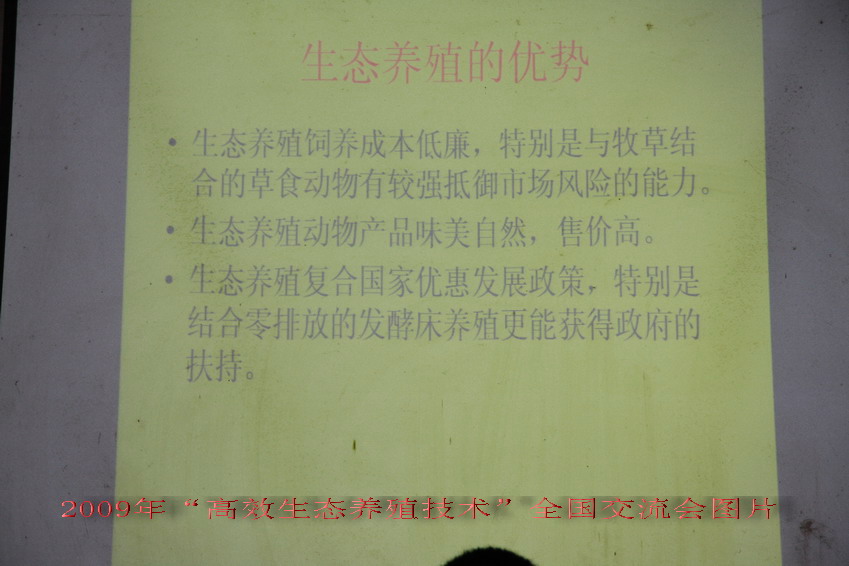 生态养殖的优势
• 生态养殖饲养成本低廉，特别是与牧草结
合的草食动物有较强抵御市场风险的能力。
• 生态养殖动物产品味美自然，售价高。
• 生态养殖复合国家优惠发展政策，特别是
结合零排放的发酵床养殖更能获得政府的
扶持。
2009年“高效生态养殖技术”全国交流会图片